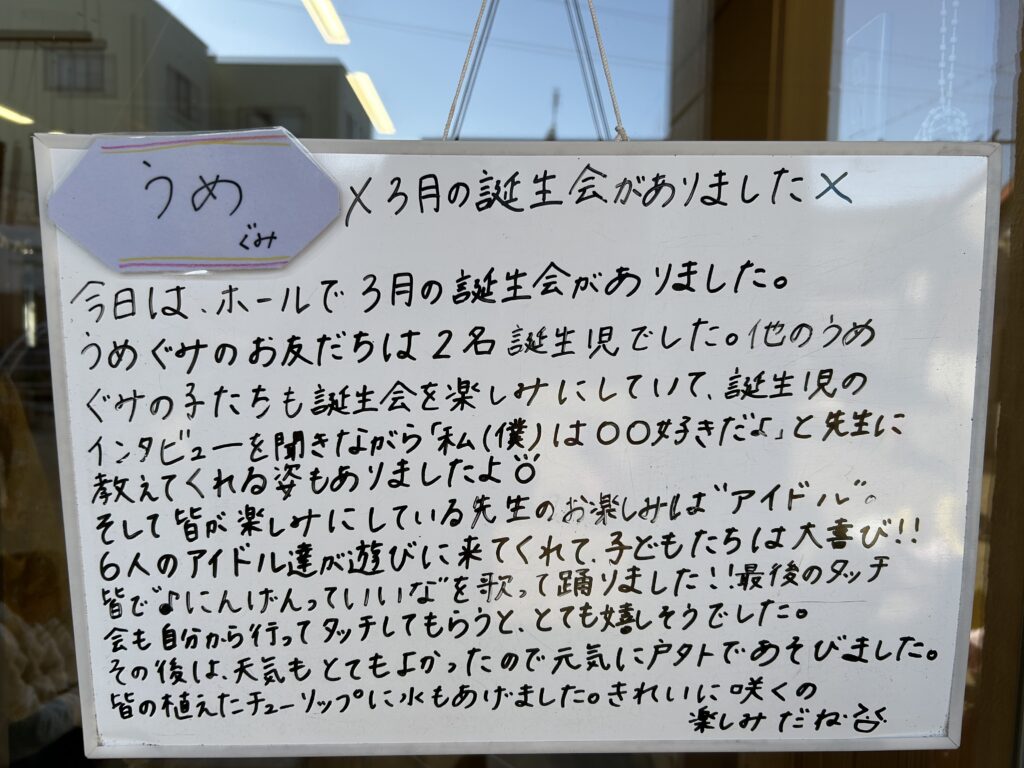 うめ
ぐみ
3月の誕生会がありました
今日は、ホールで3月の誕生会がありました。
うめぐみのお友だちは2名誕生児でした。他のうめ
ぐみの子たちも誕生会を楽しみにしていて、誕生児の
インタビューを聞きながら「私(僕)は〇〇好きだよ」と先生に
教えてくれる姿もありましたよ
そして皆が楽しみにしている先生のお楽しみは"アイドル"。
6人のアイドル達が遊びに来てくれて、子どもたちは大喜び!!
皆で"♪にんげんっていいな"を歌って踊りました!!最後のタッチ
会も自分から行ってタッチしてもらうと、とても嬉しそうでした。
その後は、天気もとてもよかったので元気に戸外であそびました。
皆の植えたチューリップに水もあげました。きれいに咲くの
楽しみだね